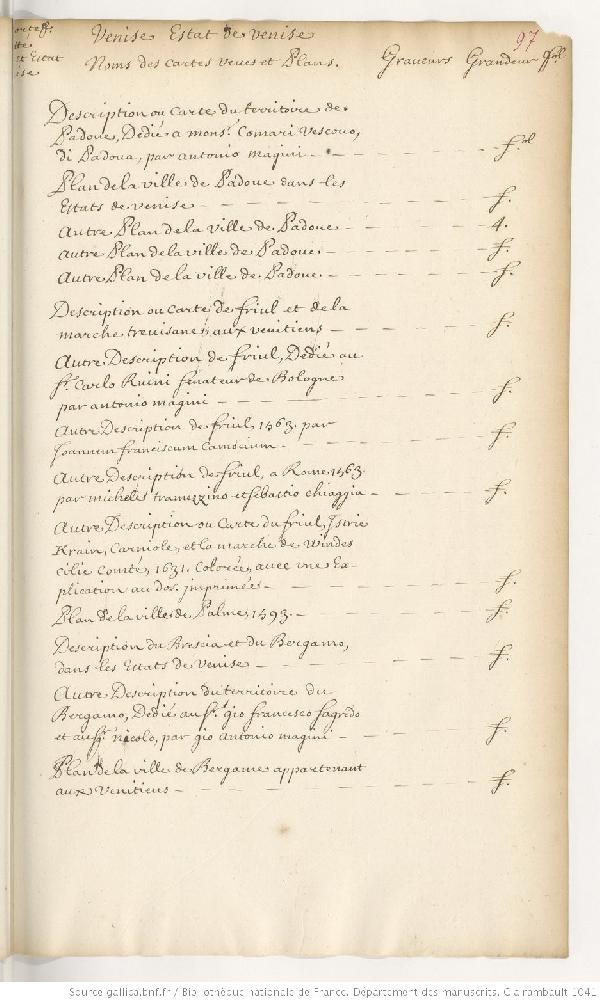 Venise Estat de venise
97
Noms des cartes veues et Plans. Graveurs Grandeur ffol.
Description ou Carte du territoire de
Padoue, Dedié a monsr. Cornari Vescovo,
di Padoua, par antonio magini - fol
Plan de la ville de Padoue dans les
Estats de venise - f.
autre Plan de la ville de Padoue - 4.
autre Plan de la ville de Padoue. - f.
autre Plan de la ville de Padoue. - f.
Description ou Carte de friul et de la
marche trevisane, aux venitiens - f.
autre Description de friul, Dedié au
sr. Carlo Ruini senateur de Bologne
par antonio magini - f.
autre Description de friul, 1563. par
Joannem franciscum Camocium. - f.
autre Description de friul, a Rome, 1563.
par micheles tramezzino et sebastio chiaggia - f.
autre Description ou Carte du friul, Istrie
Krain, Carniole, et la marche de Windes
cilie Comté, 1631. Colorée, avec une Ex-
plication au dos. jmprimée - f.
Plan de la ville de Palme, 1593. - f.
Description du Brescia et du Bergamo,
dans les Estats de Venise - f.
autre Description du territoire du
Bergamo, Dedié au sr. gio francesco sagredo
et au sr. nicolo, par gio antonio magini - f.
Plan de la ville de Bergame appartenant
aux Venitiens - f.
Source gallica.bnf.fr / Bibliothèque nationale de France. Département des manuscrits. Clairambault 1041